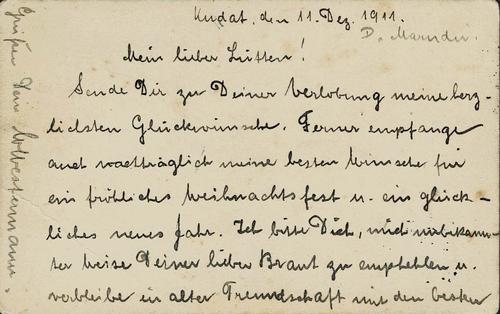 Kudat, den 11. Dez. 1911.
Mein lieber
Sende Dir zu Deiner Verlobung meine herz-
lichsten Glückwünsche. Ferner empfange
auch nachträglich meine besten Wünsche für
ein fröhliches Weihnachtsfest u. ein glück-
liches neues Jahr. Ich bitte Dich, mich unbekann-
ter Weise Deiner lieben Braut zu empfehlen u.
verbleibe in alter Freundschaft mit den besten